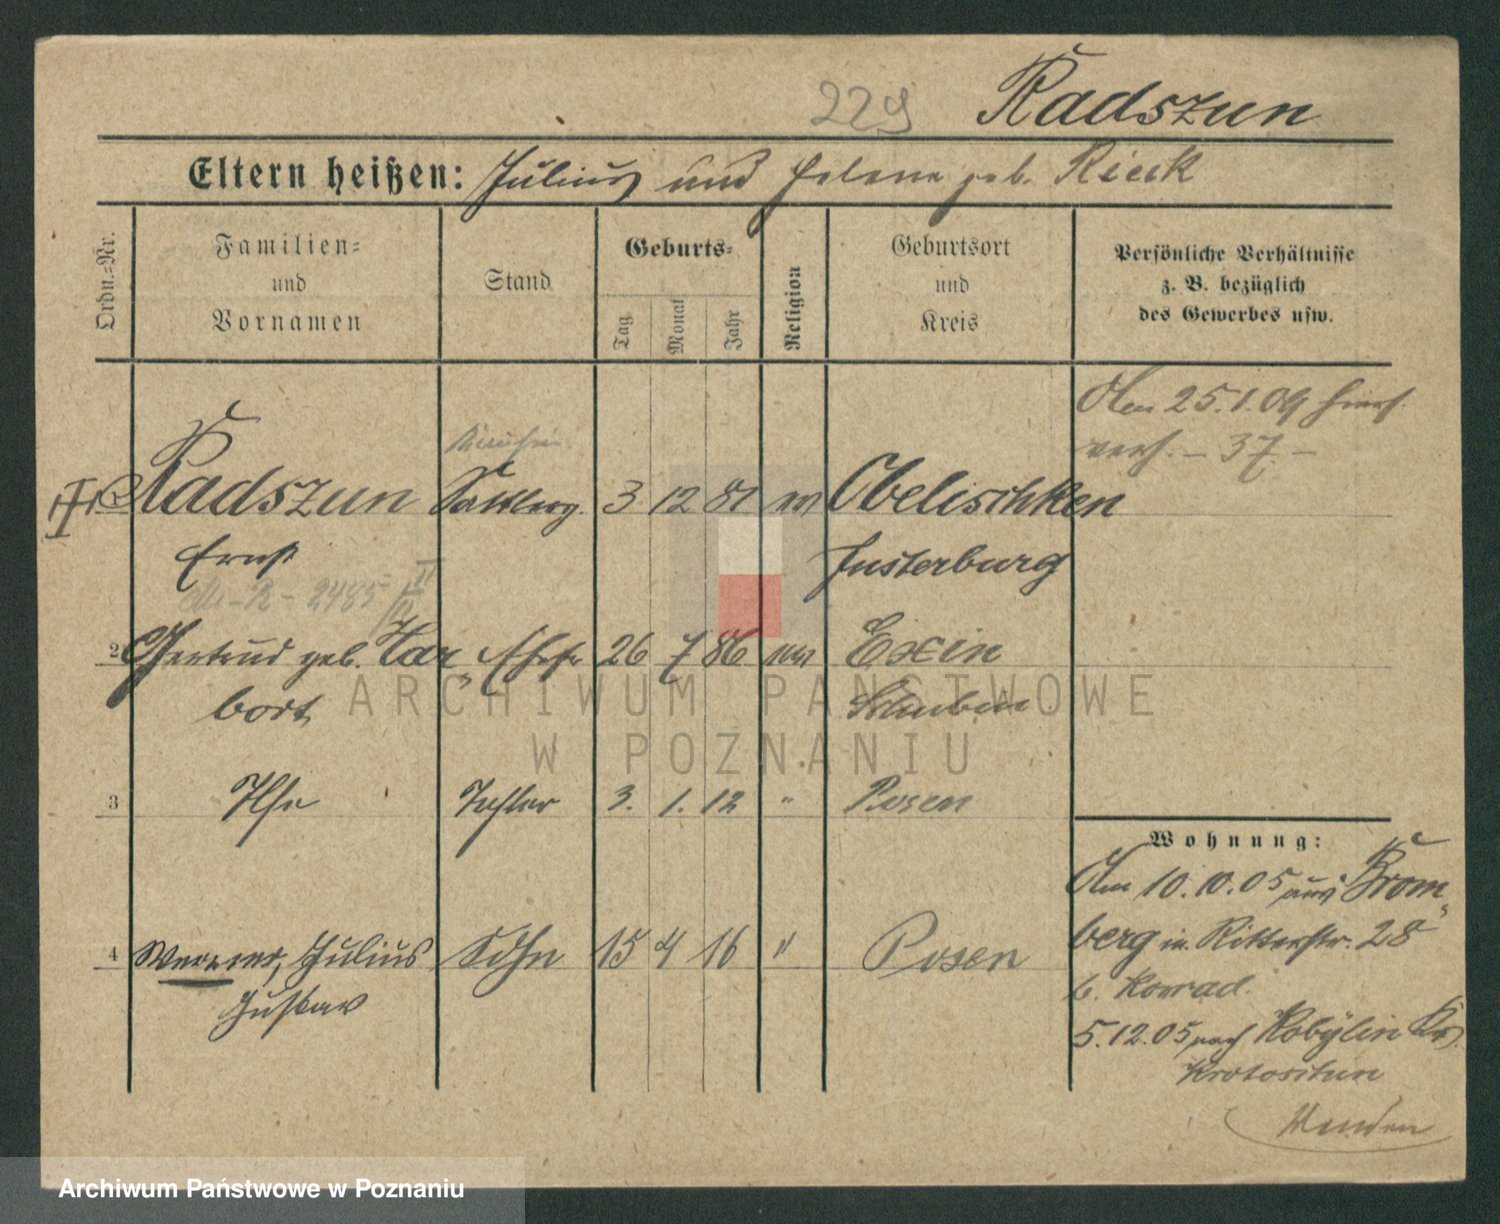 229 Radszun
Eltern heißen: Julius und Helene geb. Rieck
Ordn.=Nr.
Familien=
und
Vornamen
Stand
Geburts=
Tag
Monat
Jahr
Religion
Geburtsort
und
Kreis
Persönliche Verhältnisse
z. B. bezüglich
des Gewerbes usw.
Am 25.1.09 hier
verh. – 37 –
Radszun 3 12 81 Obelischken
Ernst Insterburg
R – 2485
2 Gertrud geb. Tar„ Ehefr 26 7 86 Exin
bort Schubin
3 Ilse Tochter 3. 1. 12 " Posen
4 Werner, Julius Sohn 15 4 16 " Posen
Gustav
Wohnung:
Am 10.10.05 aus Brom„
berg in Ritterstr. 28
b. Konrad.
5.12.05 nach Kobylin Kr.
Krotoschin
Wenden
ARCHIWUM PAŃSTWOWE
W POZNANIU
Archiwum Państwowe w Poznaniu